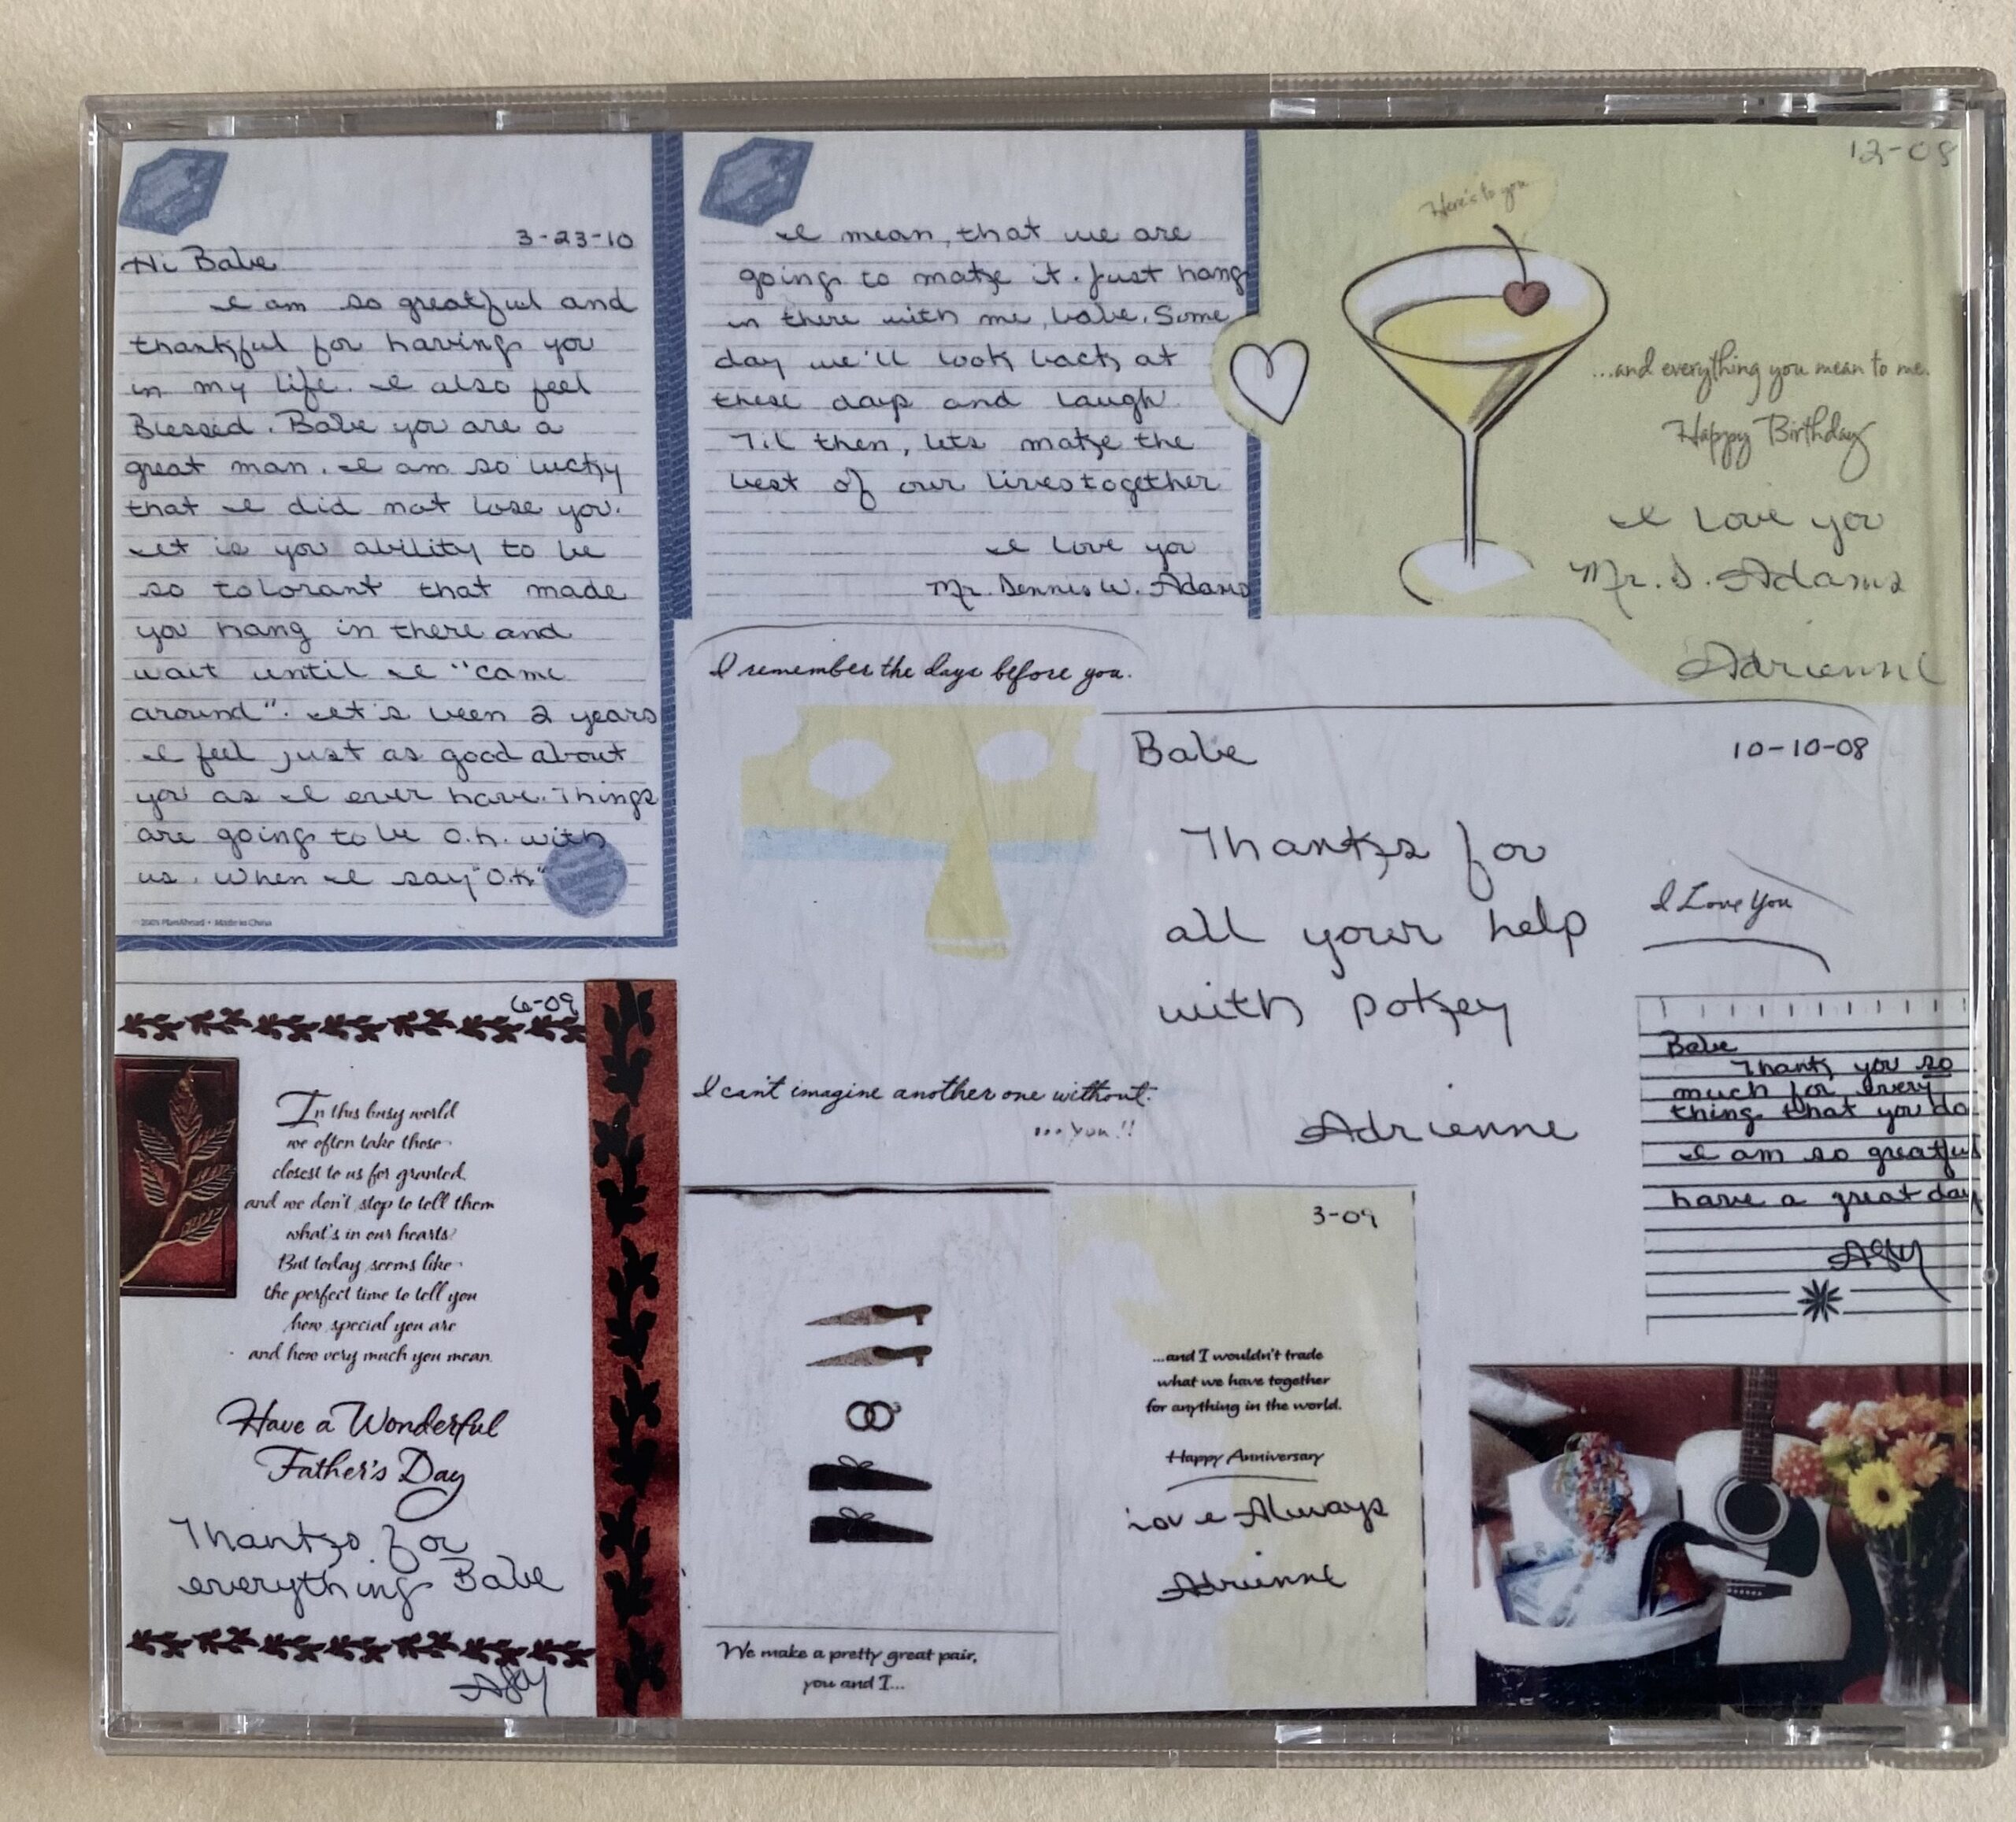 3-23-10
Hi Babe
I am so greatful and
thankful for having you
in my life. I also feel
Blessed. Babe you are a
great man. I am so lucky
that I did not lose you.
It is you ability to be
so tolorant that made
you hang in there and
wait until I "came
around". It's been 2 years
I feel just as good about
you as I ever have. Things
are going to be O.K. with
us. When I say "O.K"
2005 PlanAhead • Made in China
I mean, that we are
going to make it. Just hang
in there with me, babe. Some
day we'll look back at
these days and laugh
'Til then, lets make the
best of our lives together
I love you
Mr. Dennis W. Adams
12-08
Here's to you
...and everything you mean to me.
Happy Birthday
I Love you
Mr. D. Adams
Adrienne
I remember the days before you.
I can't imagine another one without.
...you!!
Babe
10-10-08
Thanks for
all your help
with pokey
Adrienne
I Love You
Babe
Thank you so
much for every
thing that you do
I am so greatful
have a great day
6-09
In this busy world
we often take those
closest to us for granted,
and we don't stop to tell them
what's in our hearts.
But today seems like
the perfect time to tell you
how special you are
and how very much you mean.
Have a Wonderful
Father's Day
Thanks for
everything Babe
We make a pretty great pair,
you and I...
3-09
...and I wouldn't trade
what we have together
for anything in the world.
Happy Anniversary
Love Always
Adrienne